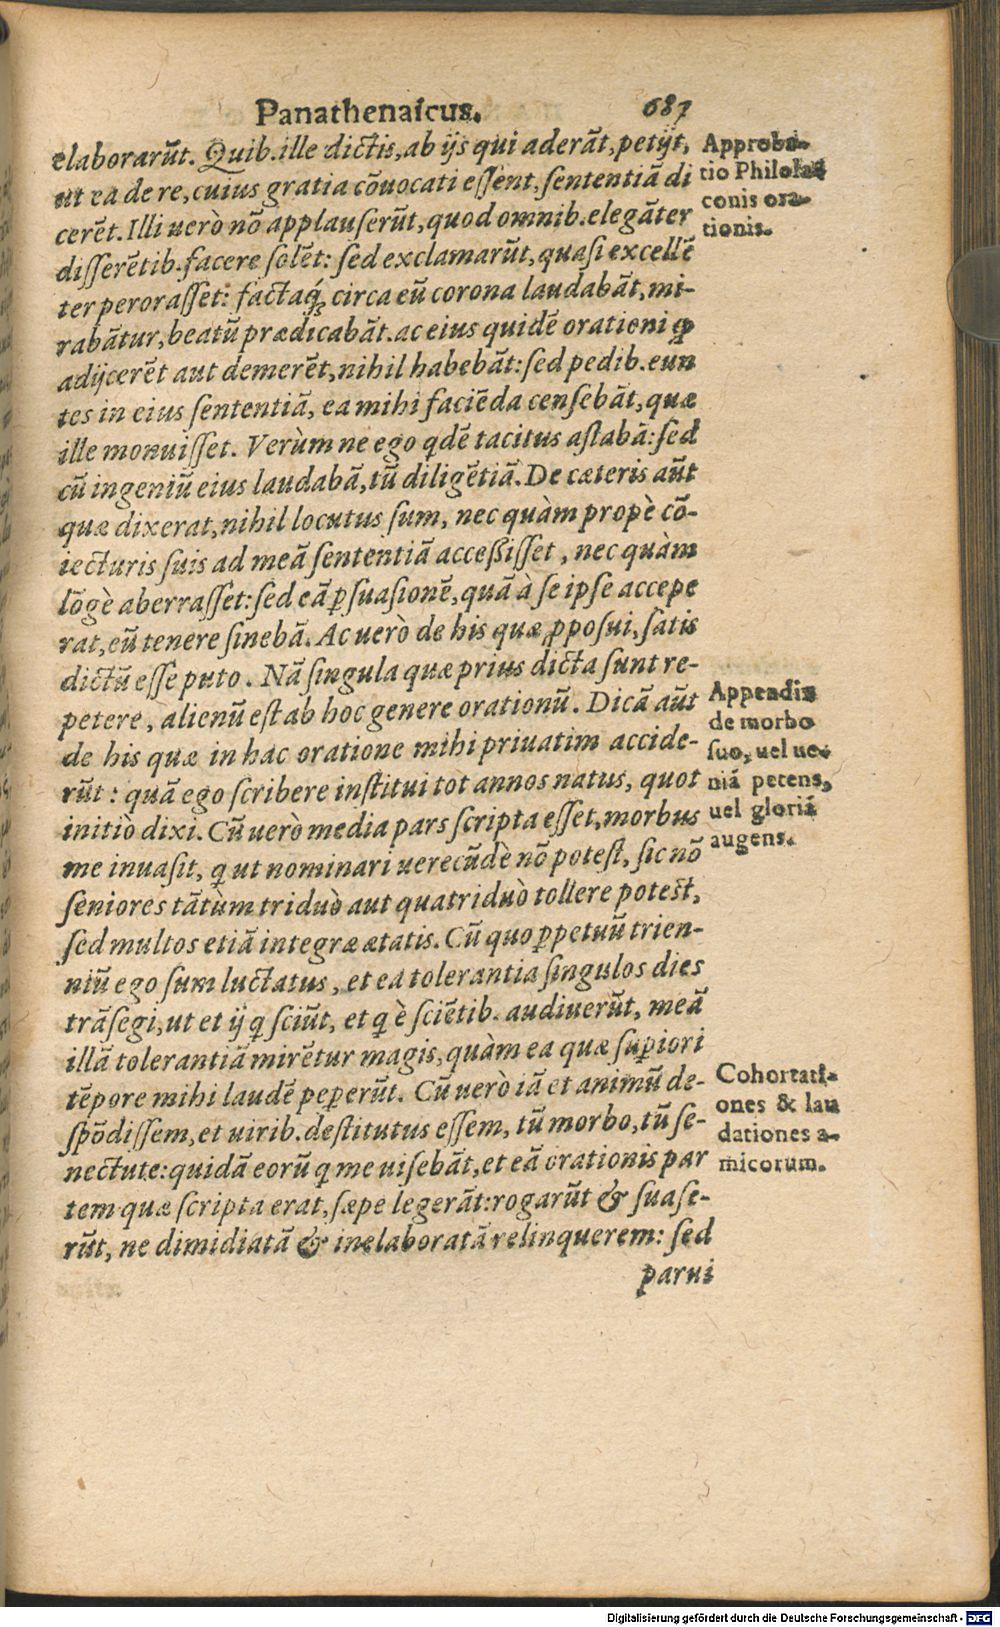 Panathenaicus. 687
elaborarūt. Quib. ille dictis, ab ijs qui aderāt, petijt,
ut ea de re, cuius gratia cōuocati essent, sententiā di
cerēt. Illi uerò nō applauserūt, quod omnib. elegāter
disserētib. facere solēt: sed exclamarūt, quasi excellē
ter perorasset: factaq́ꝫ circa eū corona laudabāt, mi-
rabātur, beatū prædicabāt. ac eius quidē orationi ꝙ
adijcerēt aut demerēt, nihil habebāt: sed pedib. eun
tes in eius sententiā, ea mihi faciēda censebāt, quæ
ille monuisset. Verùm ne ego qdē tacitus astabā: sed
cū ingeniū eius laudabā, tū diligētiā. De cæteris aūt
quæ dixerat, nihil locutus sum, nec quàm propè cō-
iecturis suis ad meā sententiā accessisset, nec quàm
lōgè aberrasset: sed eā ꝑsuasionē, quā à se ipse accepe
rat, eū tenere sinebā. Ac uerò de his quæ ꝓposui, satis
dictū esse puto. Nā singula quæ prius dicta sunt re-
petere, alienū est ab hoc genere orationū. Dicā aūt
de his quæ in hac oratione mihi priuatim accide-
rūt: quā ego scribere institui tot annos natus, quot
initiò dixi. Cū uerò media pars scripta esset, morbus
me inuasit, q ut nominari uerecūdè nō potest, sic nō
seniores tātùm triduò aut quatriduò tollere potest,
sed multos etiā integræ ætatis. Cū quo ꝑpetuū trien-
niū ego sum luctatus, et ea tolerantia singulos dies
trāsegi, ut et ij q sciūt, et q è sciētib. audiuerūt, meā
illā tolerantiā mirētur magis, quàm ea quæ suꝑiori
tēpore mihi laudē peꝑerūt. Cū uerò iā et animū de-
spōdissem, et uirib. destitutus essem, tū morbo, tū se-
nectute: quidā eorū q me uisebāt, et eā orationis par
tem quæ scripta erat, sæpe legerāt: rogarūt & suase-
rūt, ne dimidiatā & inelaboratā relinquerem: sed
parui
Approba-
tio Philola-
conis ora-
tionis.
Appendix
de morbo
suo, uel ue-
niā petens,
uel gloriā
augens.
Cohortati-
ones & lau
dationes a-
micorum.
Digitalisierung gefördert durch die Deutsche Forschungsgemeinschaft - DFG